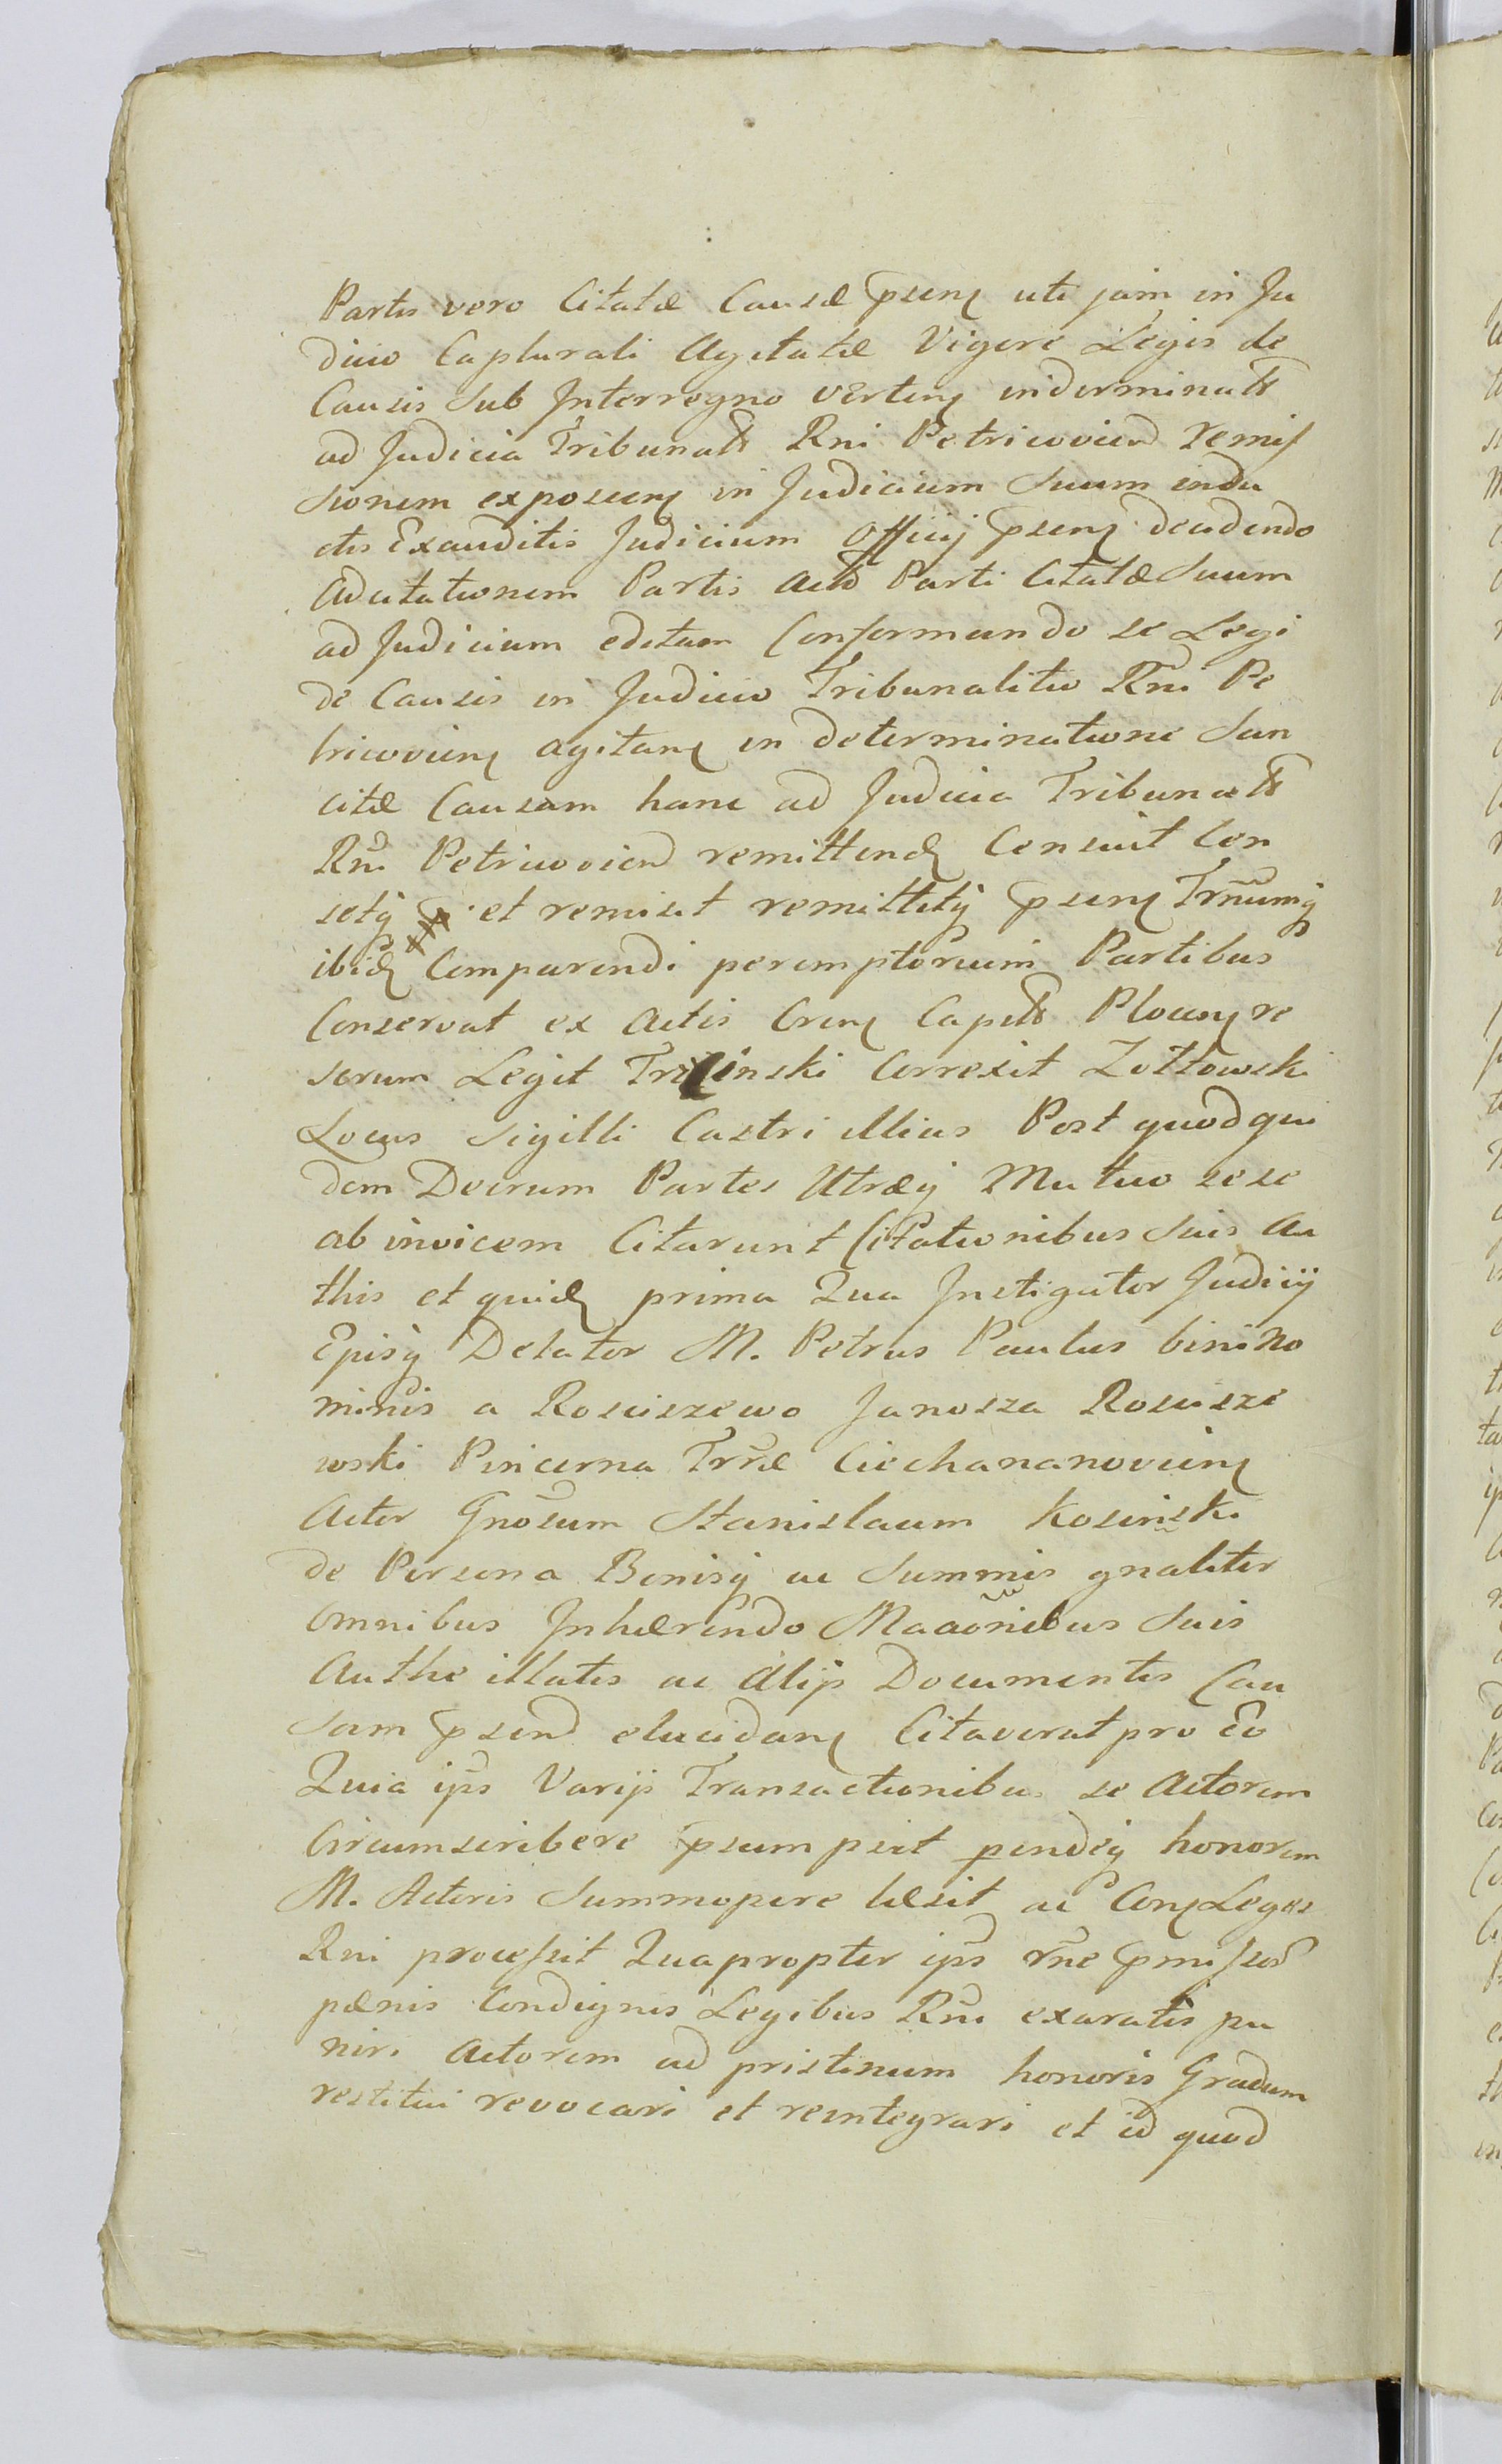 Partis vero Citatæ Causæ psenς uti jam in Ju
dicio Capturali Agitatæ Vigore Legis de
Causis Sub Interregno verteng inderminatt
ad Judicia Tribunatt Rni Petricovien remis
sionem exposceng in Judicium Suum indu
ctis Exauditis Judicium Officij psenς decidendo
Adcitationem Partis Actò Parti Citatæ Suum
ad Judicium editam Conformando se Legi
de Causis in Judicio Tribunalitio Rni Pe
tricovienς agitanς in determinatione San
citæ Causam hanc ad Judicia Tribunatt
Rni Petricovien remittendς Censuit Cen
setq et remisit remittitq psenς Trnumq
ibidς Comparendi peremptorium Partibus
Conservat ex Actis Crenς Capitt Plocenς re
scrum Legit Trilinski Correxit Zołtowski
Locus Sigilli Castri illius Post quod qui
dem Decrum Partes Utræq Mutuo sese
ab invicem Citarunt Citationibus Suis Au
this et quidς prima Qua Instigator Judicij
Episq Delator M. Petrus Paulus bini No
minis a Rosciszewo Junosza Roscisze
wski Pincerna Trræ Ciechananovienς
Actor Gnosum Stanislaum Kosinski
de Persona Bonisq ac Summis gnaliter
Omnibus Inhærendo Maaonibus Suis
Authe illatis ac Alijs Documentis Cau
sam psend elucidanς Citaverat pro Eo
Quia ips Varijs Transactionibus se Actorem
Circumscribere psumpsit pindeq honorem
M. Actoris Summopere læsit ac Conς Leges
Rni processit Quapropter ips rne pmissor
pænis Condignis Legibus Rni exaratis pu
niri Actorem ad pristinum honoris Gradum
restitui revocari et reintegrari et id quod